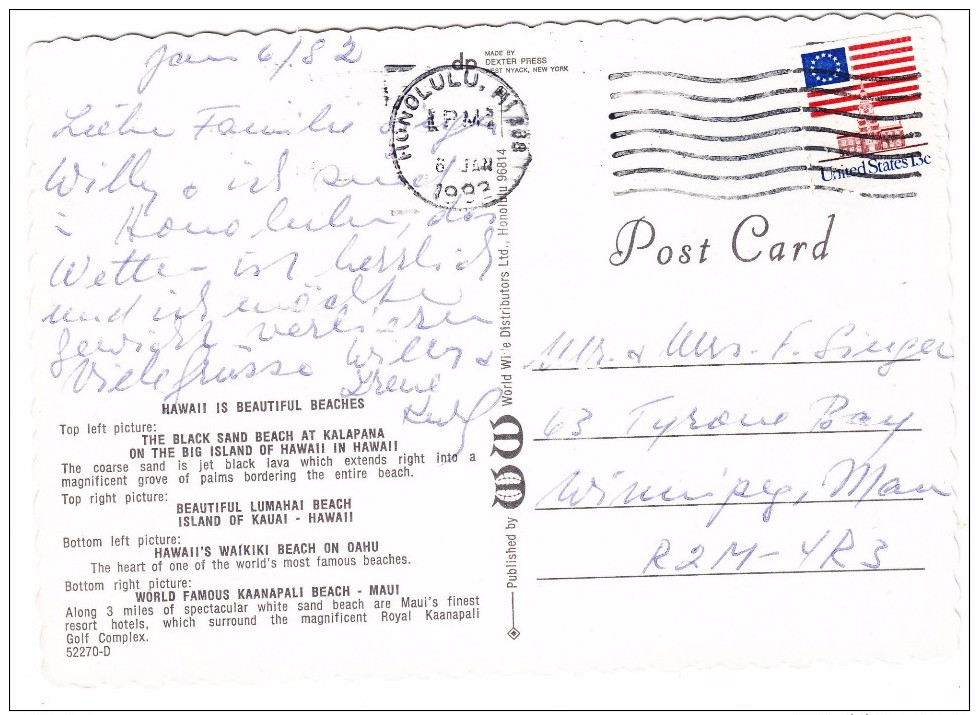 Jan 6/82
MADE BY
DEXTER PRESS
WEST NYACK, NEW YORK
dp
HONOLULU, HI 968
PM
6 JAN
1982
United States 13c
Liebe Familie Singer
Willy & ich sind
in Honolulu, das
Wetter ist herrlich
und ich möchte
gewicht verlieren
Viele grüsse Willy &
Irene
Post Card
Mr. & Mrs. F. Singer
63 Tyrone Bay
Winnipeg, Man
R2M-4R3
HAWAII IS BEAUTIFUL BEACHES
Top left picture:
THE BLACK SAND BEACH AT KALAPANA
ON THE BIG ISLAND OF HAWAII IN HAWAII
The coarse sand is jet black lava which extends right into a
magnificent grove of palms bordering the entire beach.
Top right picture:
BEAUTIFUL LUMAHAI BEACH
ISLAND OF KAUAI - HAWAII
Bottom left picture:
HAWAII'S WAIKIKI BEACH ON OAHU
The heart of one of the world's most famous beaches.
Bottom right picture:
WORLD FAMOUS KAANAPALI BEACH - MAUI
Along 3 miles of spectacular white sand beach are Maui's finest
resort hotels, which surround the magnificent Royal Kaanapali
Golf Complex.
52270-D
Published by WW World Wide Distributors Ltd., Honolulu 96814